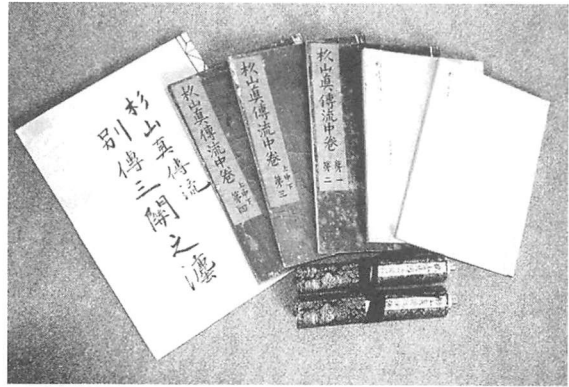 杉山真傳流
別傳三関之灋
杦山真傳流中卷
上中下
第四
杦山真傳流中卷
上中下
第三
杦山真傳流中卷
第一
第二